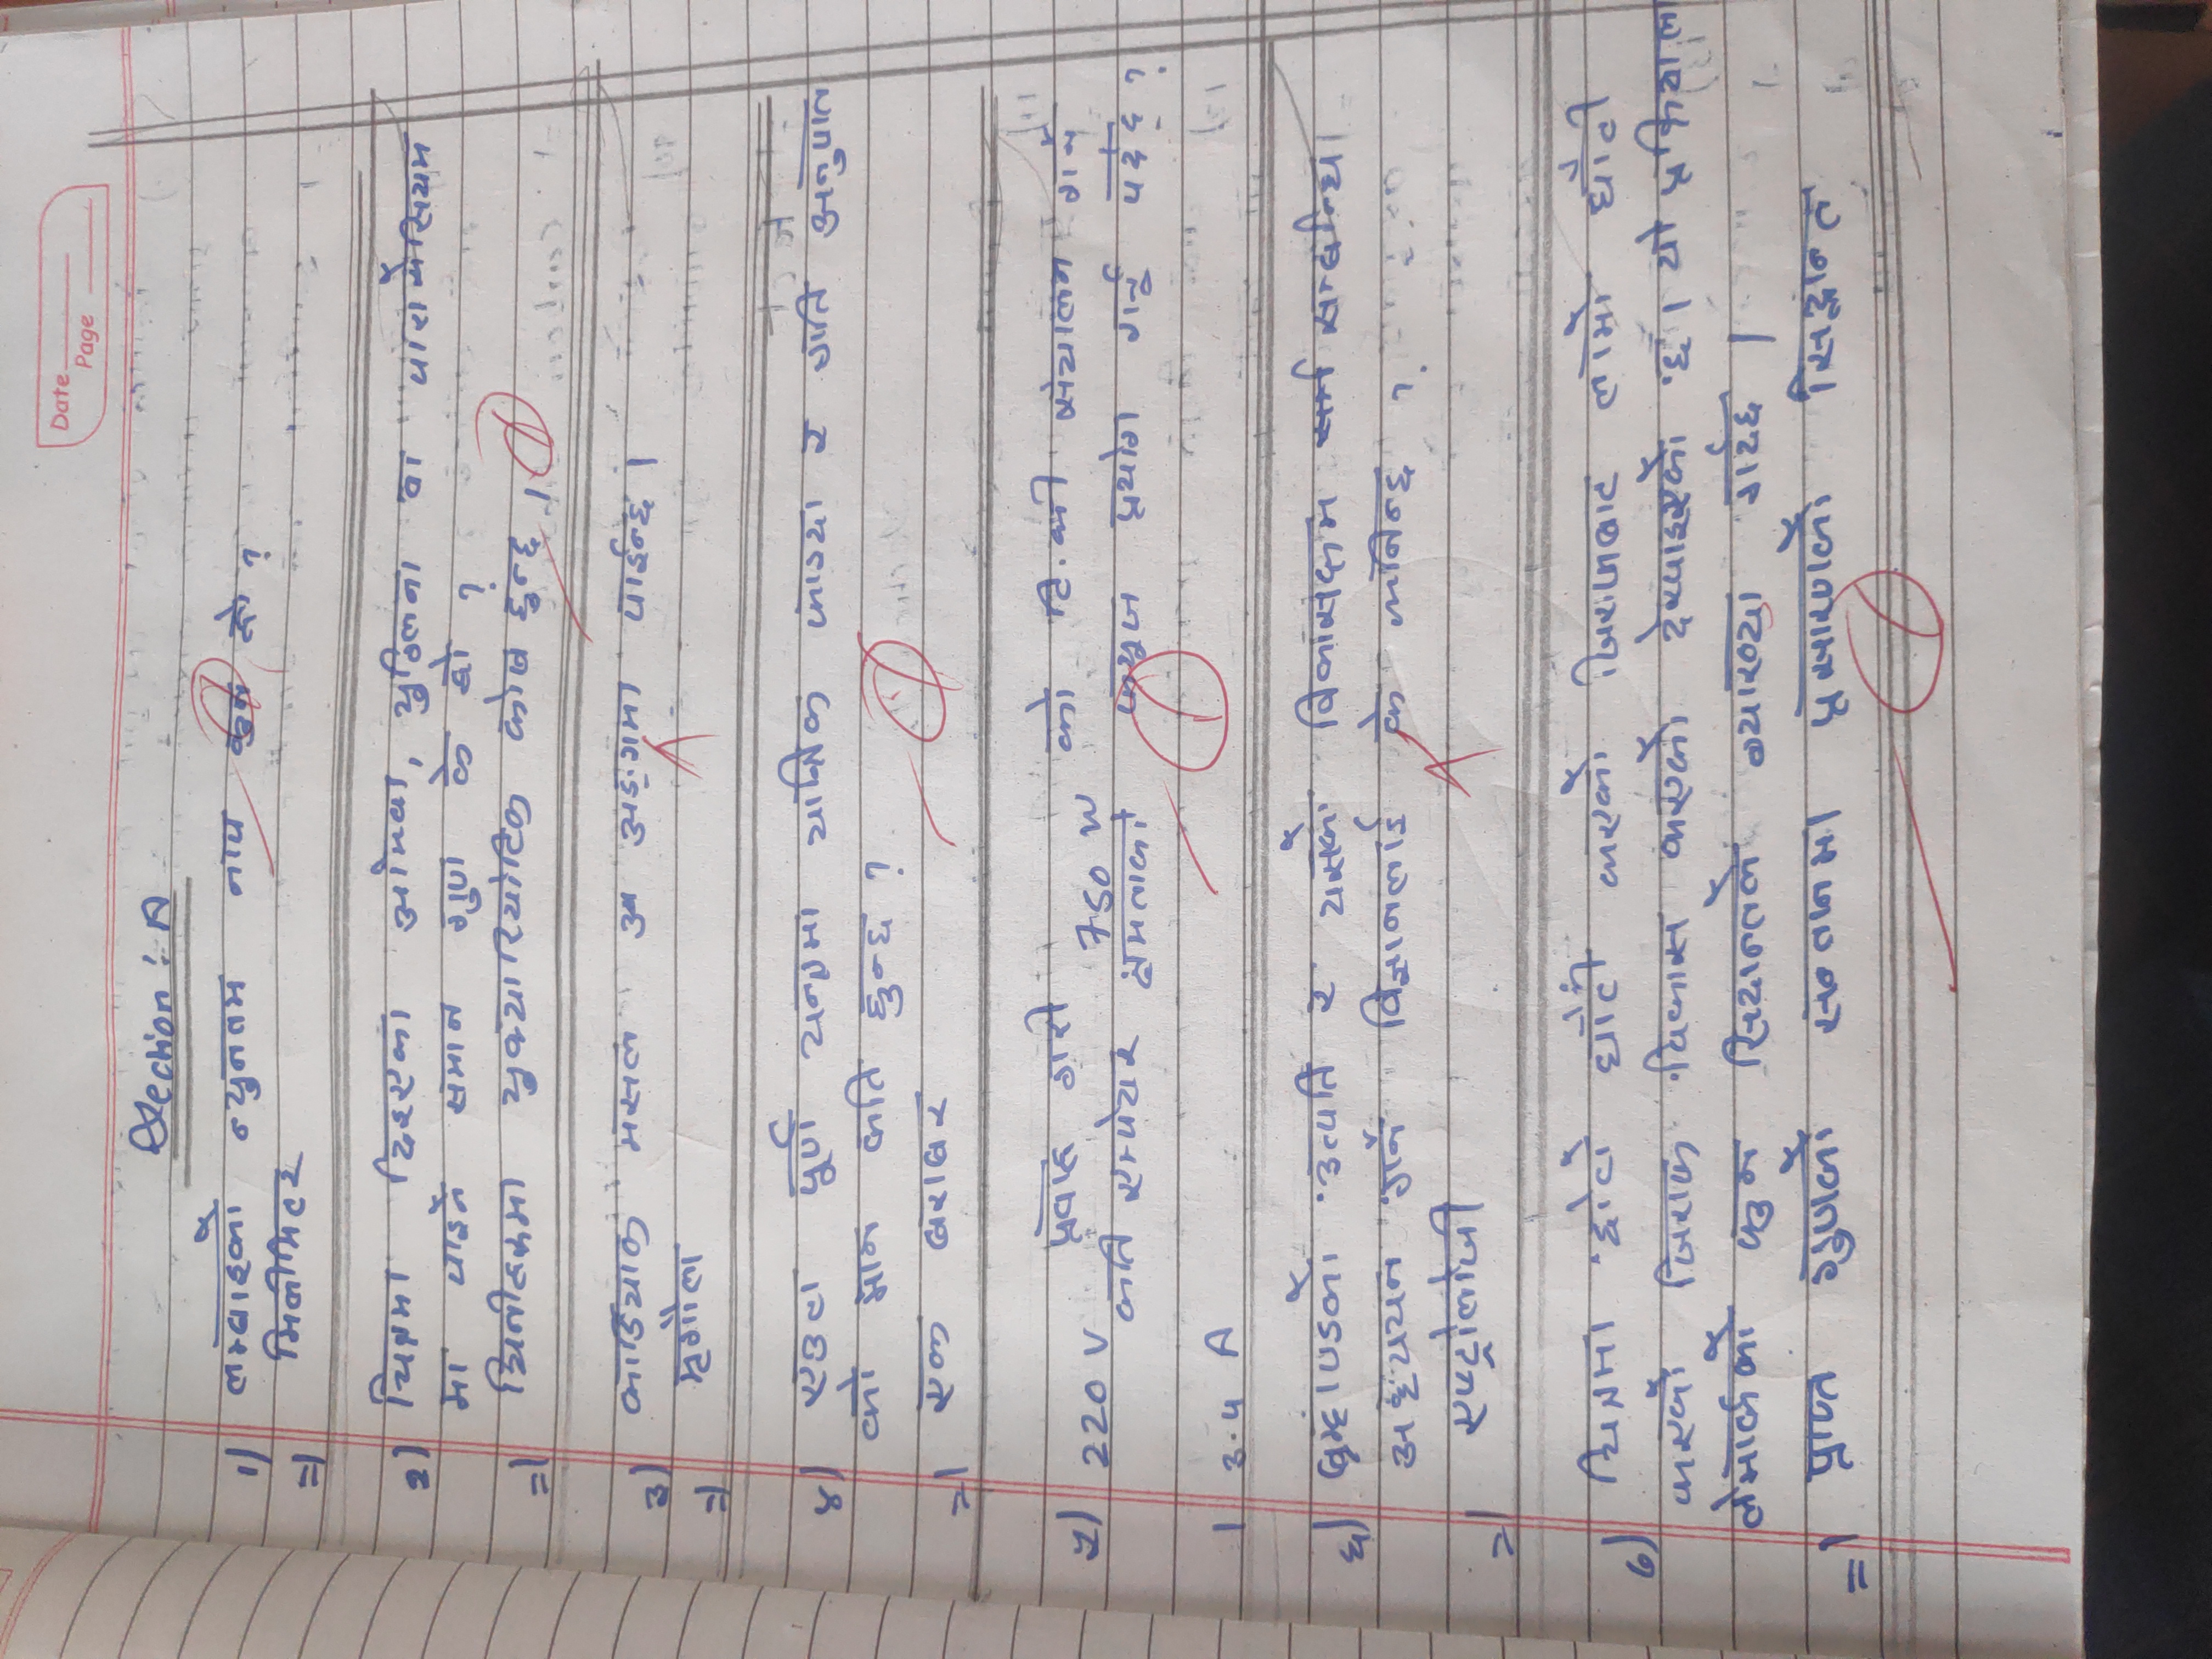 Date
Page
Section : A
1) लम्बाइको न्युनतम नाप कुन हो ?
=) मिलीमिटर
२) चित्रमा दिइएका अमिवा, युग्लिना वा पारामेसियम
मा पाइने समान गुण के हो ?
=) यिनीहरूमा युक्यारियोटिक कोष हुन्छ ।
३) कार्डियाक मसल अङ्गमा पाईन्छ ।
=) मृगौला
४) एउटा पूर्ण यन्त्रमा यान्त्रिक फाइदा र गति अनुपात
को मान कति हुन्छ ?
=) एक बराबर
५) 220 V प्रवाह गरी 750 W को टि.भी संचालन गर्न
कति एम्पियर क्षमताको फ्यूज प्रयोग गर्नु पर्दछ ?
३.५ A
६) ब्रम्हाण्डको उत्पति र यसको विकासक्रम सम्बन्धि
अध्ययन गर्ने विज्ञानलाई के भनिन्छ ?
=) एष्ट्रोलोजी
७) चित्रमा छोटो घाँटी भएको जिराफबाट लामो घाँटी
भएको जिराफ विकास भएको देखाइएको छ। यो प्रक्रियाला
लेमार्कको कुन सिद्यान्तले व्याख्या गर्दछ |
=) प्राप्त गुणको सन्तानमा प्रसारणको सिद्धान्त